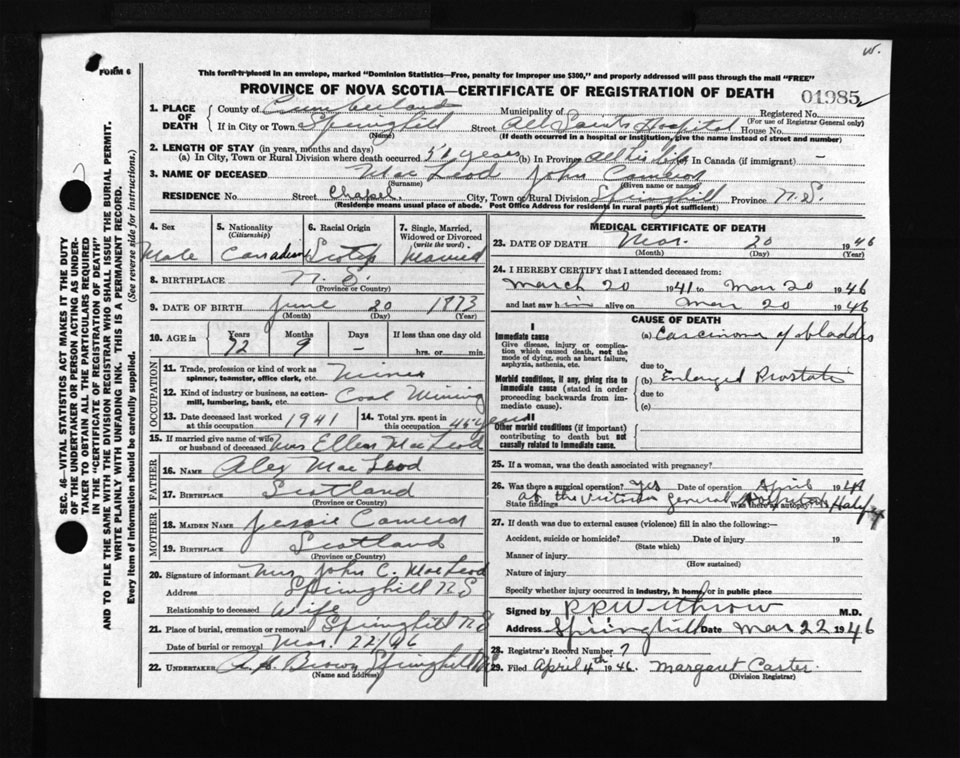 W.
FORM 6
This form is placed in an envelope, marked "Dominion Statistics—Free, penalty for improper use $300," and properly addressed will pass through the mail "FREE"
PROVINCE OF NOVA SCOTIA—CERTIFICATE OF REGISTRATION OF DEATH
01985
1. PLACE OF DEATH
County of Cumberland Municipality of Registered No.
(For use of Registrar General only)
If in City or Town Springhill Street All Saints Hospital House No.
(Name) (If death occurred in a hospital or institution, give its name instead of street and number)
2. LENGTH OF STAY (in years, months and days)
(a) In City, Town or Rural Division where death occurred 51 years (b) In Province All his life (c) In Canada (if immigrant) —
3. NAME OF DECEASED Mac Leod John Cameron
(Surname) (Given name or names)
RESIDENCE No. Street Chapel City, Town or Rural Division Springhill Province N.S.
(Residence means usual place of abode. Post Office Address for residents in rural parts not sufficient)
4. Sex Male
5. Nationality (Citizenship) Canadian
6. Racial Origin Scotch
7. Single, Married, Widowed or Divorced (write the word) Married
8. BIRTHPLACE N. S.
(Province or Country)
9. DATE OF BIRTH June 20 1873
(Month) (Day) (Year)
10. AGE in Years 72 Months 9 Days — If less than one day old hrs. or min.
OCCUPATION
11. Trade, profession or kind of work as spinner, teamster, office clerk, etc. Miner
12. Kind of industry or business, as cotton-mill, lumbering, bank, etc. Coal Mining
13. Date deceased last worked at this occupation 1941
14. Total yrs. spent in this occupation years
15. If married give name of wife or husband of deceased Mrs Ellen Mac Leod
FATHER
16. NAME Alex Mac Leod
17. BIRTHPLACE Scotland
(Province or Country)
MOTHER
18. MAIDEN NAME Jessie Cameron
19. BIRTHPLACE Scotland
(Province or Country)
20. Signature of informant Mrs John C. Mac Leod
Address Springhill N S
Relationship to deceased Wife
21. Place of burial, cremation or removal Springhill N S
Date of burial or removal Mar. 22/46
22. UNDERTAKER Brown Springhill N.S.
(Name and address)
MEDICAL CERTIFICATE OF DEATH
23. DATE OF DEATH Mar. 20 1946
(Month) (Day) (Year)
24. I HEREBY CERTIFY that I attended deceased from:
March 20 1941 to Mar 20 1946
and last saw him alive on Mar 20 1946
CAUSE OF DEATH
I
Immediate cause
Give disease, injury or complication which caused death, not the mode of dying, such as heart failure, asphyxia, asthenia, etc.
(a) Carcinoma of bladder
due to
Morbid conditions, if any, giving rise to immediate cause (stated in order proceeding backwards from immediate cause).
(b) Enlarged Prostate
due to
(c)
II
Other morbid conditions (if important) contributing to death but not causally related to immediate cause.
25. If a woman, was the death associated with pregnancy?
26. Was there a surgical operation? Yes Date of operation April 1941
State findings at the Victoria General Hospital Halifax Was there an autopsy?
27. If death was due to external causes (violence) fill in also the following:—
Accident, suicide or homicide? Date of injury 19
(State which)
Manner of injury
(How sustained)
Nature of injury
Specify whether injury occurred in industry, in home, or in public place
Signed by R P Withrow M.D.
Address Springhill Date Mar 22 1946
28. Registrar's Record Number 7
29. Filed April 4th 1946. Margaret Carter.
(Division Registrar)
SEC. 46—VITAL STATISTICS ACT MAKES IT THE DUTY OF THE UNDERTAKER OR PERSON ACTING AS UNDERTAKER TO OBTAIN ALL THE PARTICULARS REQUIRED IN THE "CERTIFICATE OF REGISTRATION OF DEATH"
AND TO FILE THE SAME WITH THE DIVISION REGISTRAR WHO SHALL ISSUE THE BURIAL PERMIT.
WRITE PLAINLY WITH UNFADING INK. THIS IS A PERMANENT RECORD.
Every item of information should be carefully supplied. (See reverse side for instructions.)